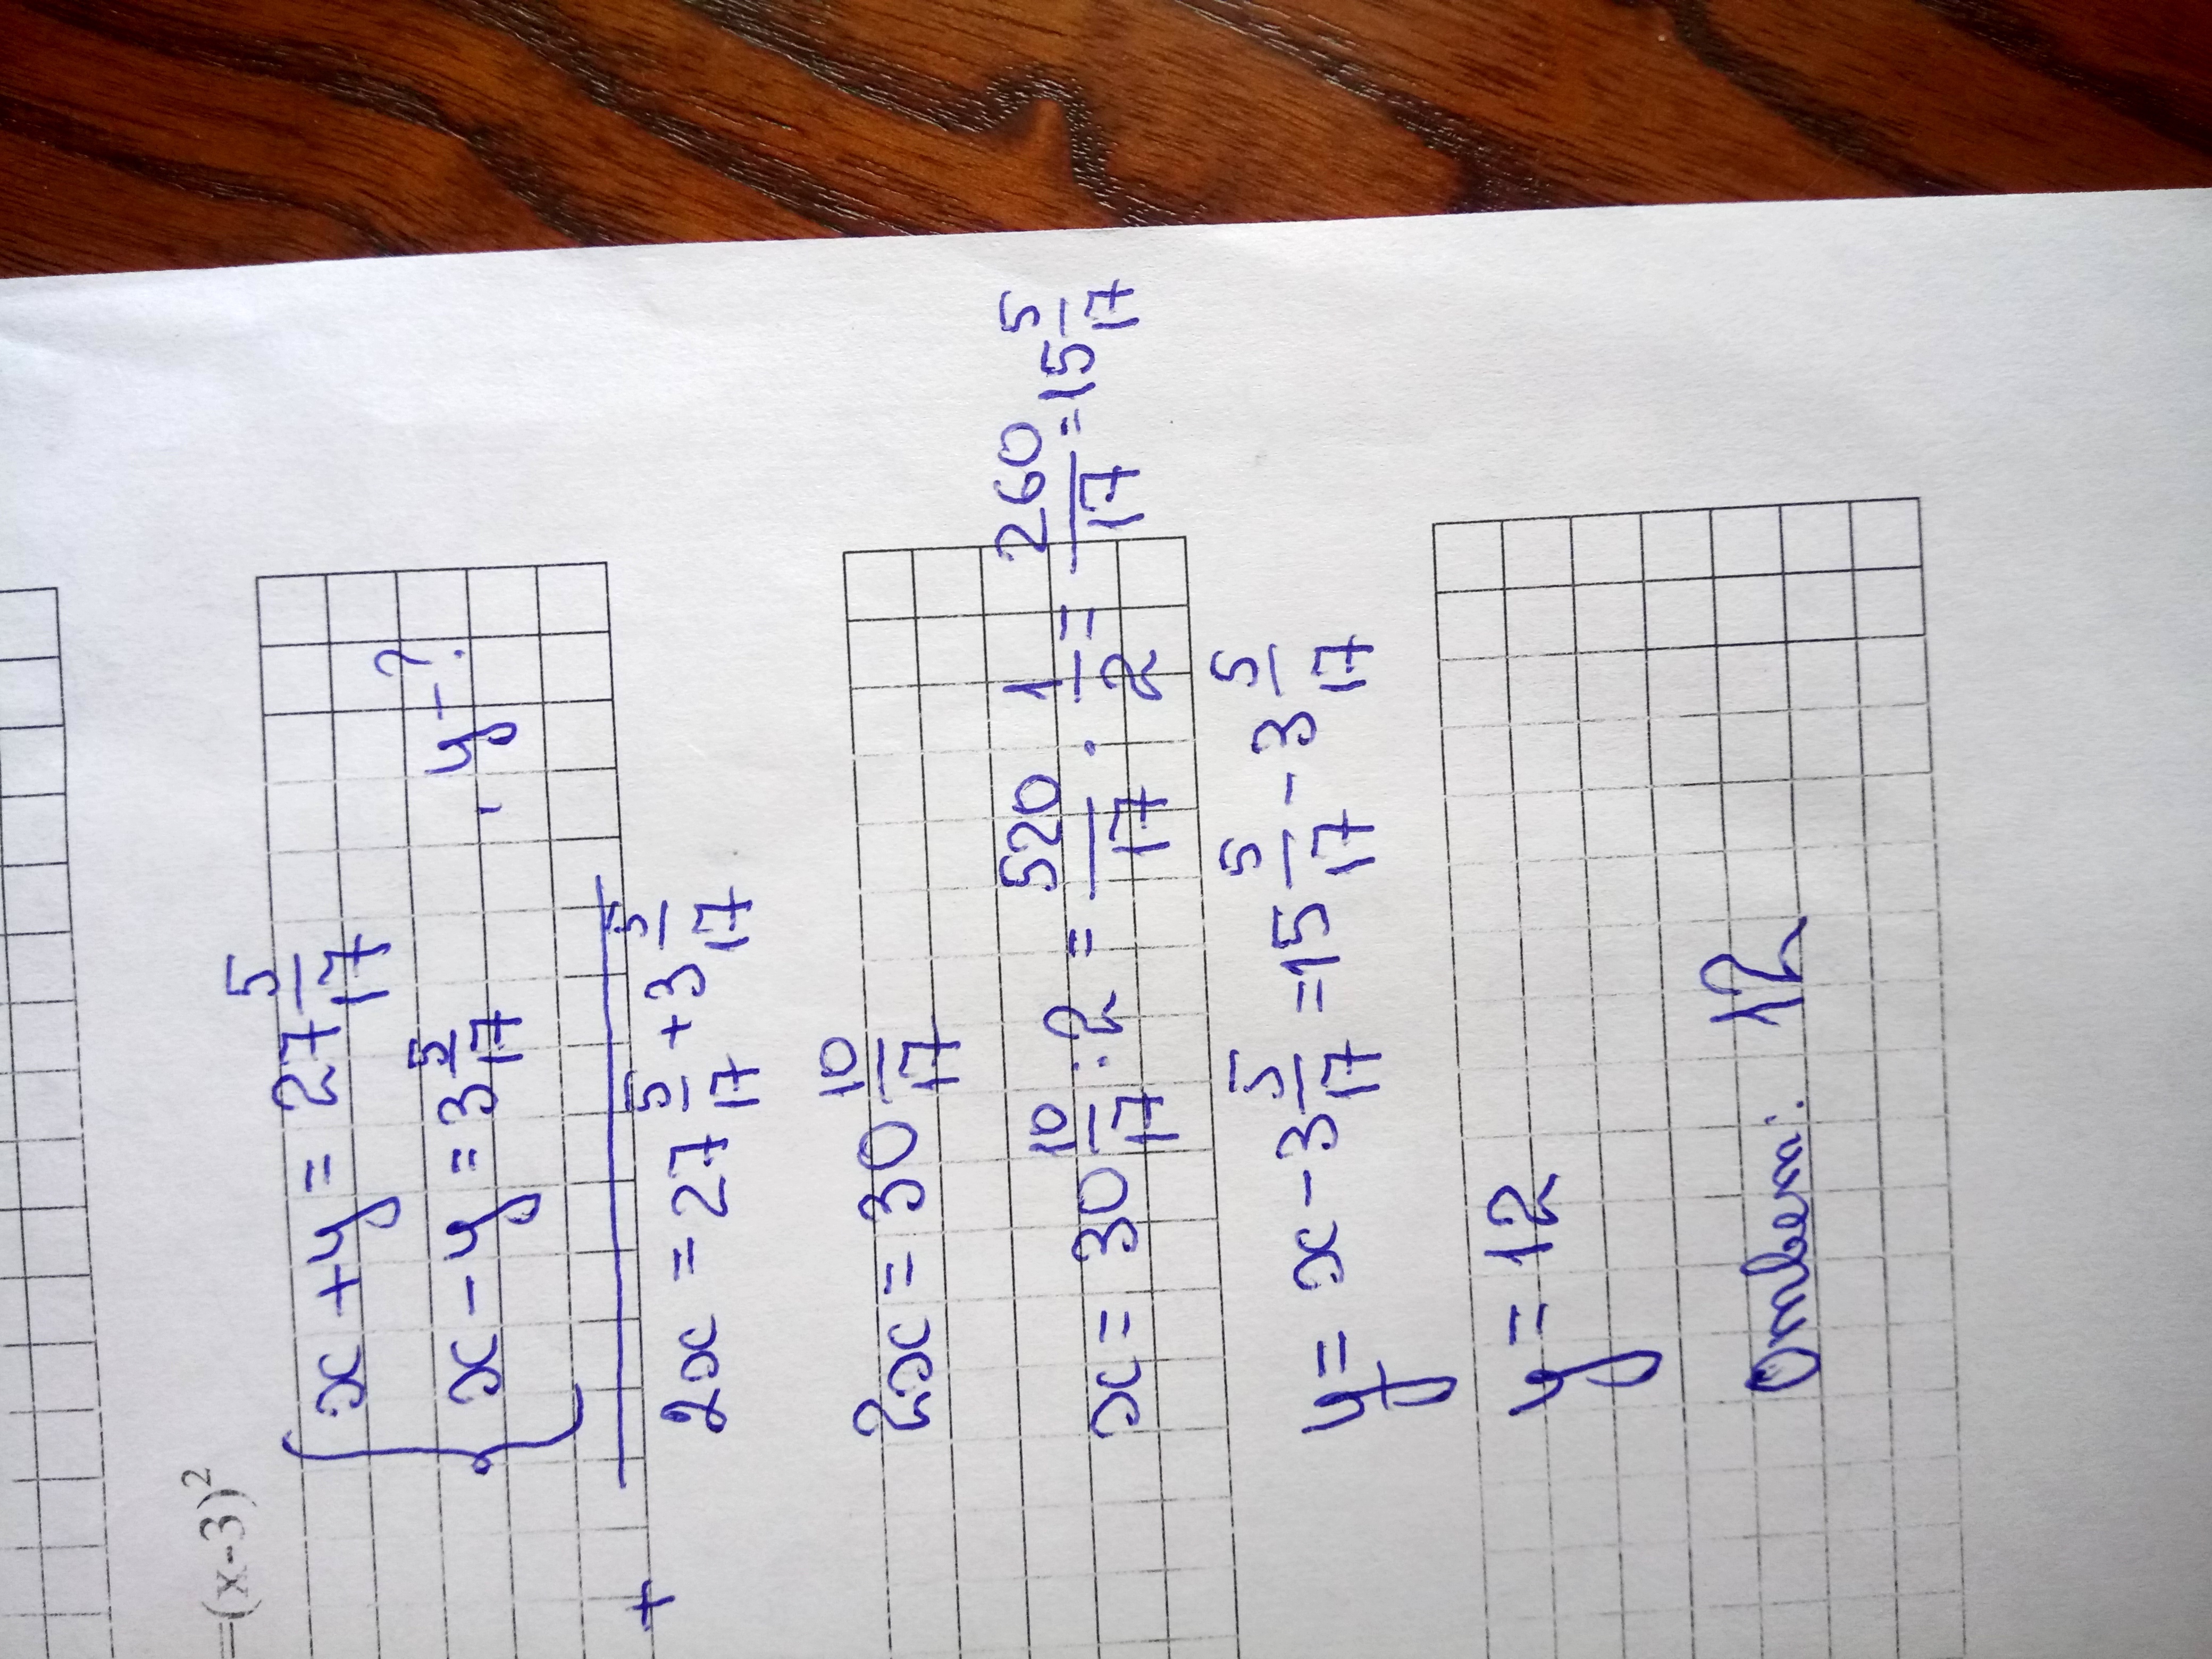 =(x-3)²
x + y = 27 5/17
x - y = 3 5/17 , y - ?
+
2x = 27 5/17 + 3 5/17
2x = 30 10/17
x = 30 10/17 : 2 = 520/17 · 1/2 = 260/17 = 15 5/17
y = x - 3 5/17 = 15 5/17 - 3 5/17
y = 12
Ответ: 12